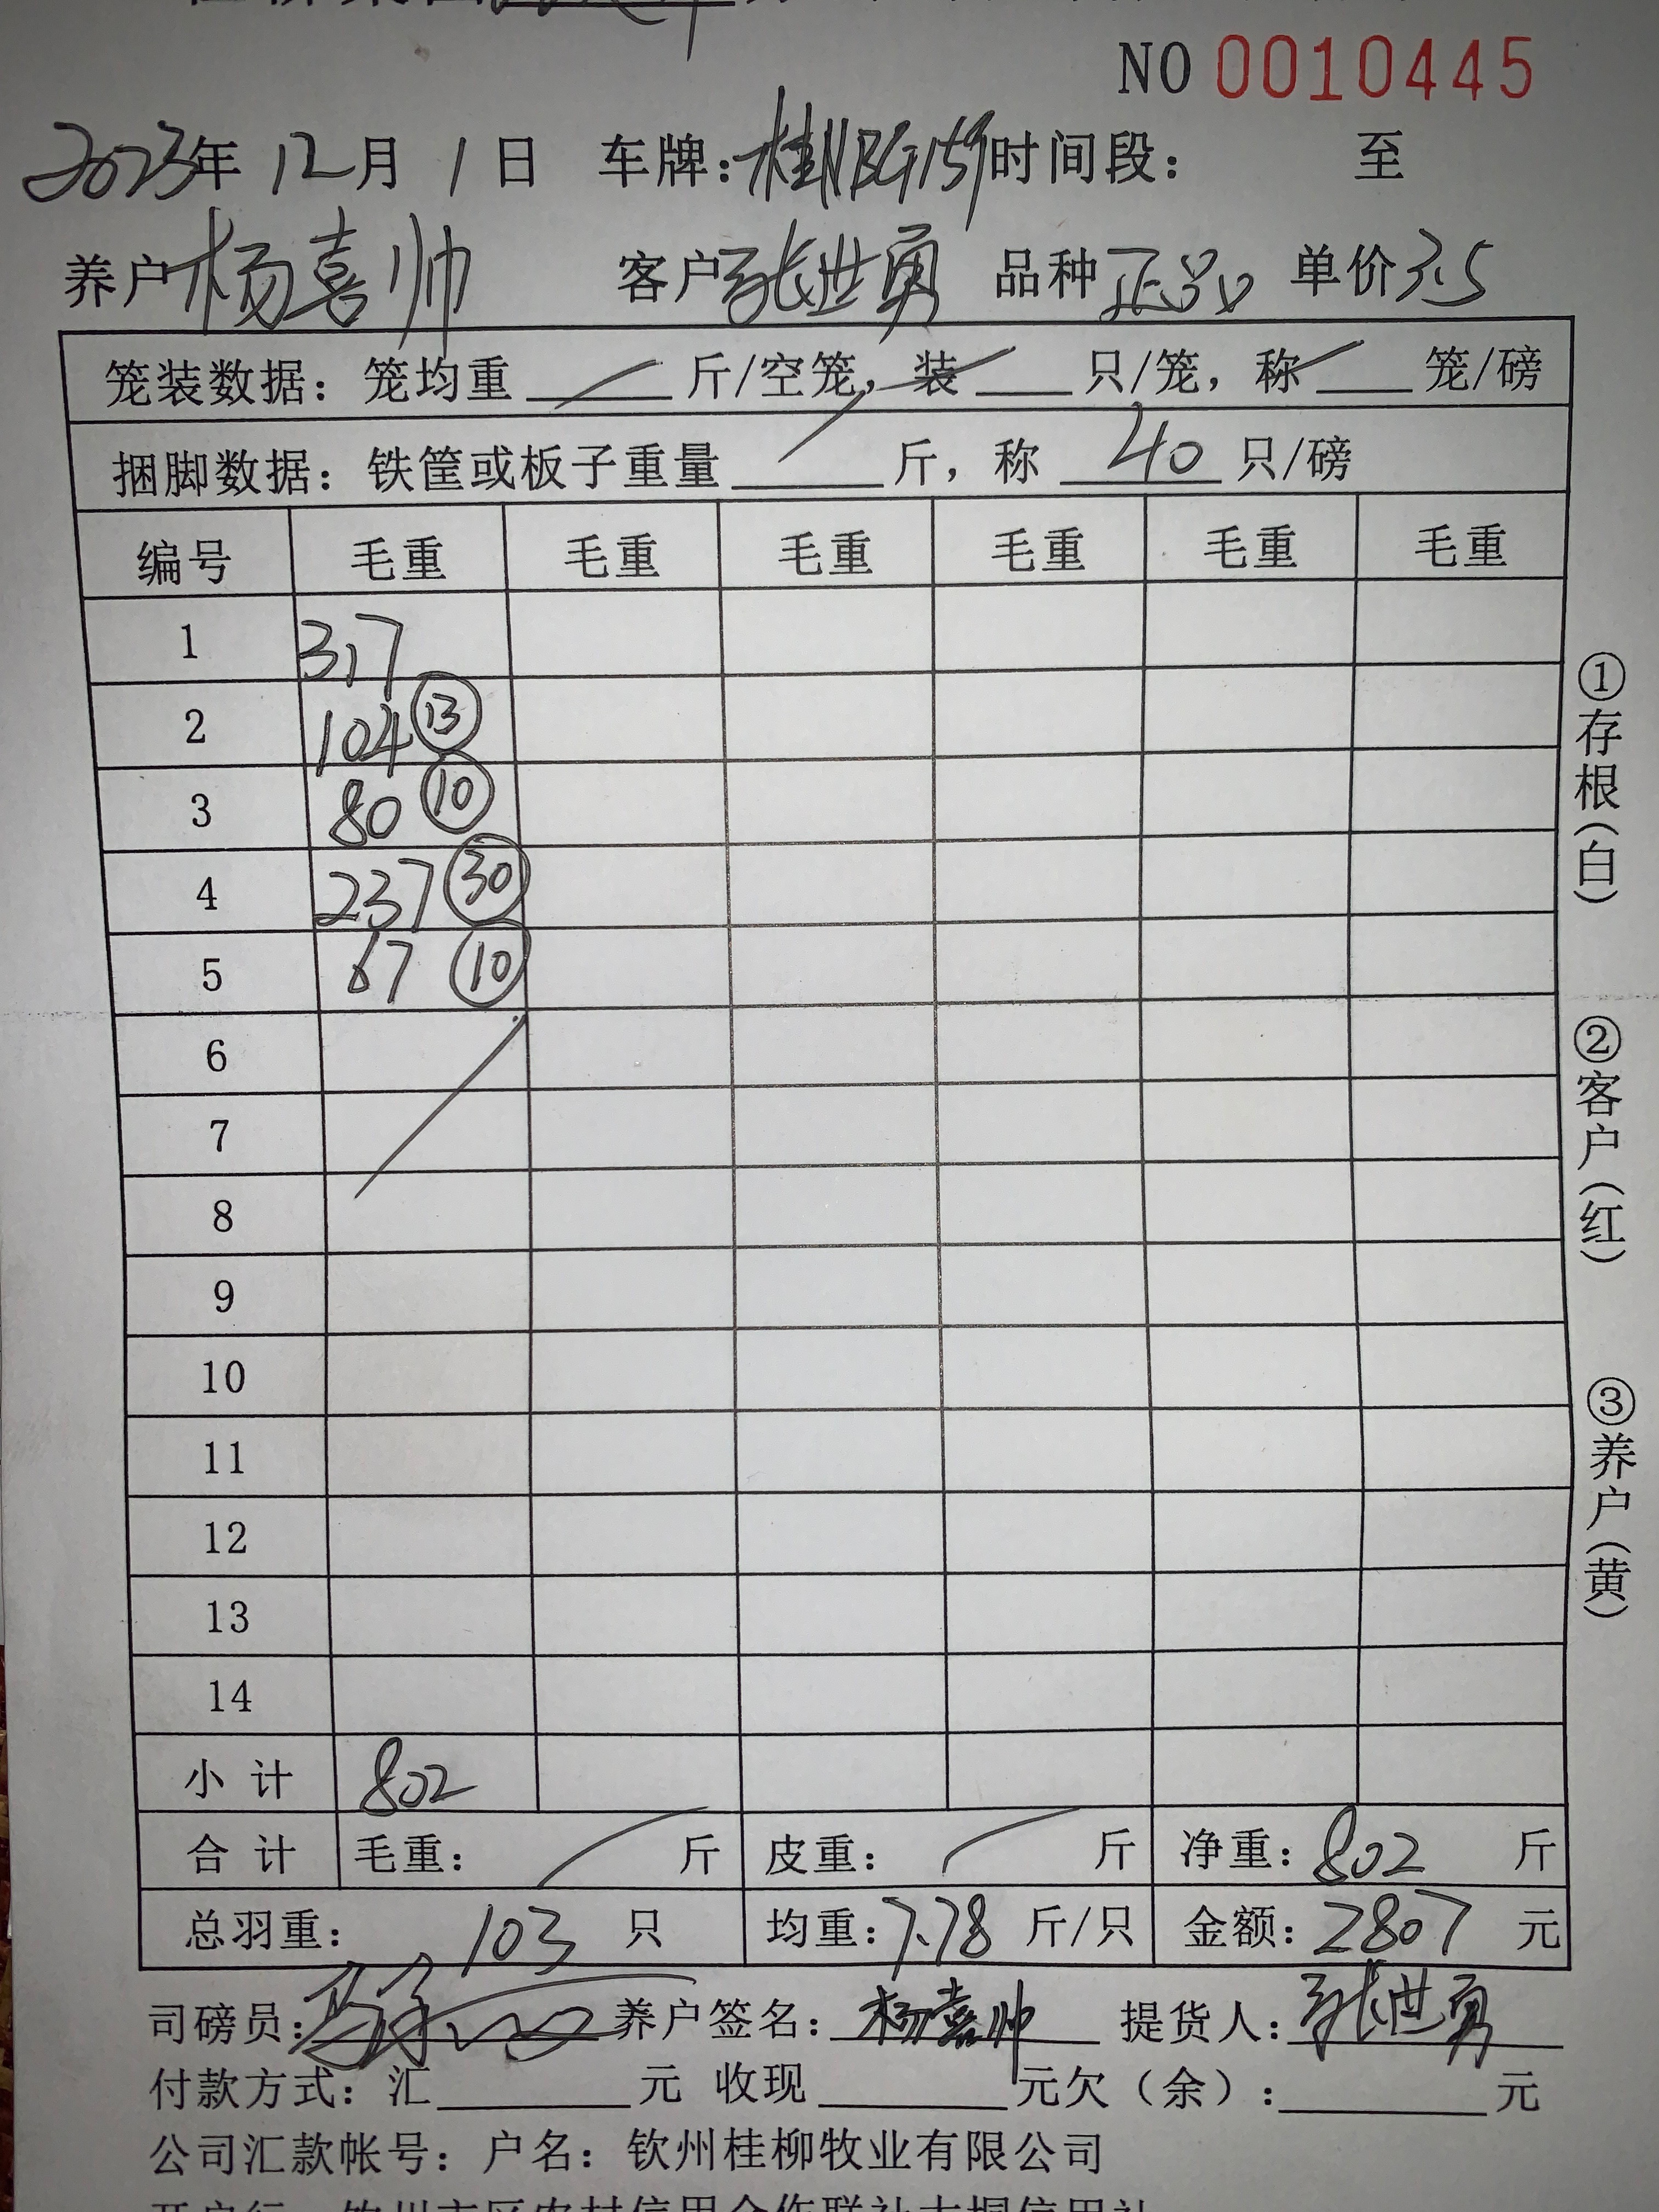 NO 0010445
2023年 12月 1日 车牌:桂NBG159 时间段: 至
养户 杨喜帅 客户 张世勇 品种 正品 单价 3.5
笼装数据: 笼均重 斤/空笼, 装 只/笼, 称 笼/磅
捆脚数据: 铁筐或板子重量 斤, 称 40 只/磅
编号 毛重 毛重 毛重 毛重 毛重 毛重
1 317
2 104 ⑬
3 80 ⑩
4 237 ㉚
5 67 ⑩
6
7
8
9
10
11
12
13
14
小计 802
合计 毛重: 斤 皮重: 斤 净重: 802 斤
总羽重: 103 只 均重: 7.78 斤/只 金额: 2807 元
司磅员: 养户签名: 杨喜帅 提货人: 张世勇
付款方式: 汇 元 收现 元欠(余): 元
公司汇款帐号: 户名: 钦州桂柳牧业有限公司
①存根(白)
②客户(红)
③养户(黄)